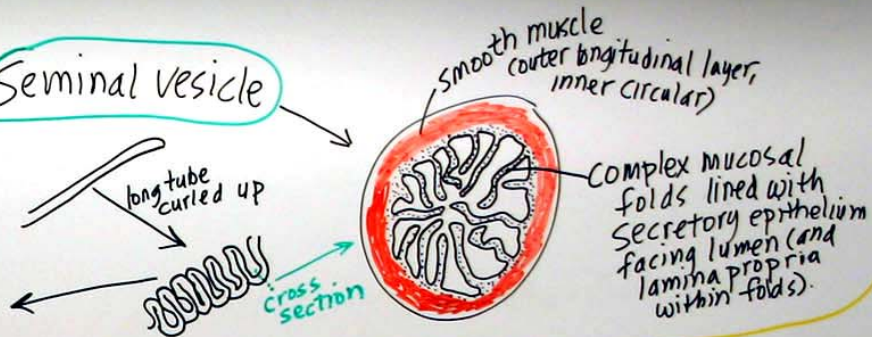 Seminal vesicle
long tube
curled up
cross
section
smooth muscle
(outer longitudinal layer,
inner circular)
complex mucosal
folds lined with
secretory epithelium
facing lumen (and
lamina propria
within folds).